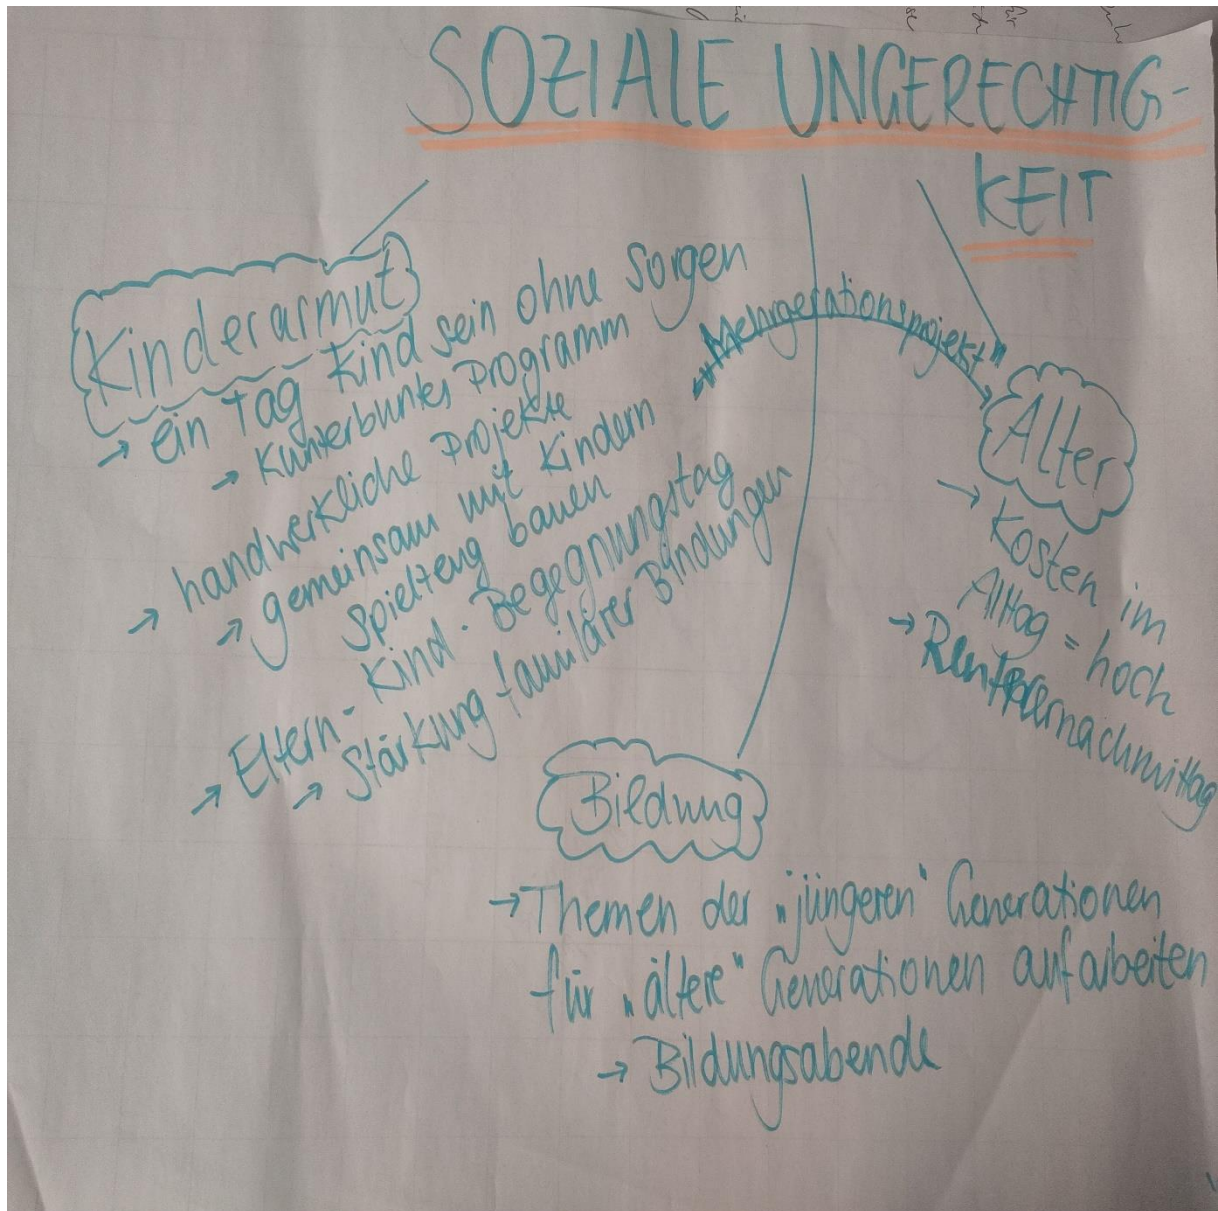 SOZIALE UNGERECHTIG-
KEIT
Kinderarmut
→ ein Tag Kind sein ohne Sorgen
→ Kunterbuntes Programm
→ handwerkliche Projekte
→ gemeinsam mit Kindern
Spielzeug bauen
→ Eltern-Kind-Begegnungstag
→ Stärkung familiärer Bindungen
"Mehrgerationsprojekt"
Alter
→ Kosten im
Alltag = hoch
→ Rentnernachmittag
Bildung
→ Themen der „jüngeren" Generationen
für „ältere" Generationen aufarbeiten
→ Bildungsabende